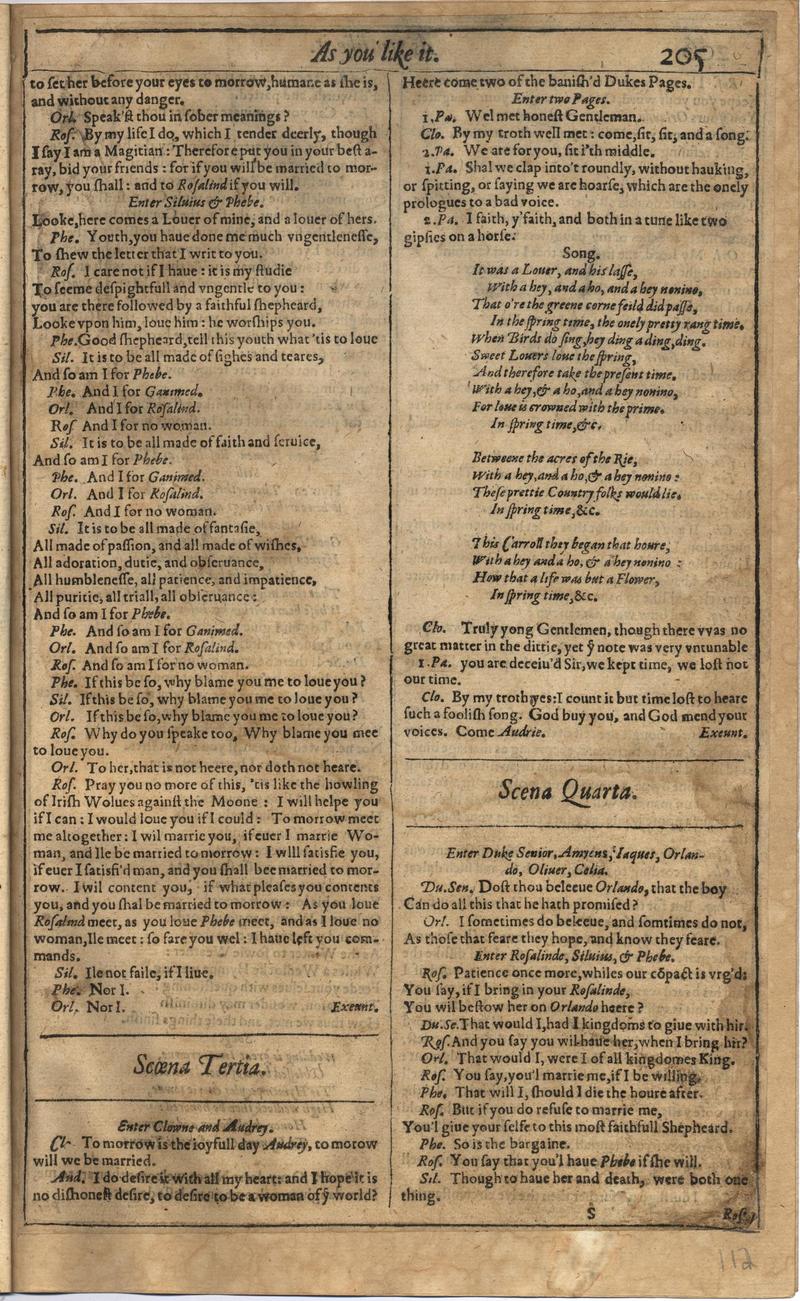 As you like it.
205
to set her before your eyes to morrow, humane as she is,
and without any danger.
Orl. Speak'st thou in sober meanings?
Ros. By my life I do, which I tender deerly, though
I say I am a Magitian: Therefore put you in your best a-
ray, bid your friends: for if you will be married to mor-
row, you shall: and to Rosalind if you will.
Enter Siluius & Phebe.
Looke, here comes a Louer of mine, and a louer of hers.
Phe. Youth, you haue done me much vngentlenesse,
To shew the letter that I writ to you.
Ros. I care not if I haue: it is my studie
To seeme despightfull and vngentle to you:
you are there followed by a faithful shepheard,
Looke vpon him, loue him: he worships you.
Phe. Good shepheard, tell this youth what 'tis to loue
Sil. It is to be all made of sighes and teares,
And so am I for Phebe.
Phe. And I for Ganimed.
Orl. And I for Rosalind.
Ros And I for no woman.
Sil. It is to be all made of faith and seruice,
And so am I for Phebe.
Phe. And I for Ganimed.
Orl. And I for Rosalind.
Ros. And I for no woman.
Sil. It is to be all made of fantasie,
All made of passion, and all made of wishes,
All adoration, dutie, and obseruance,
All humblenesse, all patience, and impatience,
All puritie, all triall, all obseruance:
And so am I for Phebe.
Phe. And so am I for Ganimed.
Orl. And so am I for Rosalind.
Ros. And so am I for no woman.
Phe. If this be so, why blame you me to loue you?
Sil. If this be so, why blame you me to loue you?
Orl. If this be so, why blame you me to loue you?
Ros. Why do you speake too, Why blame you mee
to loue you.
Orl. To her, that is not heere, nor doth not heare.
Ros. Pray you no more of this, 'tis like the howling
of Irish Wolues against the Moone: I will helpe you
if I can: I would loue you if I could: To morrow meet
me altogether: I wil marrie you, if euer I marrie Wo-
man, and Ile be married to morrow: I will satisfie you,
if euer I satisfi'd man, and you shall bee married to mor-
row. I wil content you, if what pleases you contents
you, and you shal be married to morrow: As you loue
Rosalind meet, as you loue Phebe meet, and as I loue no
woman, Ile meet: so fare you wel: I haue left you com-
mands.
Sil. Ile not faile, if I liue.
Phe. Nor I.
Orl. Nor I. Exeunt.
Scœna Tertia.
Enter Clowne and Audrey.
Cl. To morrow is the ioyfull day Audrey, to morow
will we be married.
Aud. I do desire it with all my heart: and I hope it is
no dishonest desire, to desire to be a woman of yͤ world?
Heere come two of the banish'd Dukes Pages.
Enter two Pages.
1.Pa. Wel met honest Gentleman.
Clo. By my troth well met: come, sit, sit, and a song.
2.Pa. We are for you, sit i'th middle.
1.Pa. Shal we clap into't roundly, without hauking,
or spitting, or saying we are hoarse, which are the onely
prologues to a bad voice.
2.Pa. I faith, y'faith, and both in a tune like two
gipsies on a horse.
Song.
It was a Louer, and his lasse,
With a hey, and a ho, and a hey nonino,
That o're the greene corne feild did passe,
In the spring time, the onely pretty rang time.
When Birds do sing, hey ding a ding, ding.
Sweet Louers loue the spring,
And therefore take the present time.
With a hey, & a ho, and a hey nonino,
For loue is crowned with the prime.
In spring time, &c.
Betweene the acres of the Rie,
With a hey, and a ho, & a hey nonino:
These prettie Country folks would lie.
In spring time, &c.
This Carroll they began that houre,
With a hey and a ho, & a hey nonino:
How that a life was but a Flower,
In spring time, &c.
Clo. Truly yong Gentlemen, though there vvas no
great matter in the dittie, yet yͤ note was very vntunable
1.Pa. you are deceiu'd Sir, we kept time, we lost not
our time.
Clo. By my troth yes: I count it but time lost to heare
such a foolish song. God buy you, and God mend your
voices. Come Audrie. Exeunt.
Scena Quarta.
Enter Duke Senior, Amyens, Iaques, Orlan-
do, Oliuer, Celia.
Du.Sen. Dost thou beleeue Orlando, that the boy
Can do all this that he hath promised?
Orl. I sometimes do beleeue, and somtimes do not,
As those that feare they hope, and know they feare.
Enter Rosalinde, Siluius, & Phebe.
Ros. Patience once more, whiles our cõpact is vrg'd:
You say, if I bring in your Rosalinde,
You wil bestow her on Orlando heere?
Du.Se. That would I, had I kingdoms to giue with hir.
Ros. And you say you wil haue her, when I bring hir?
Orl. That would I, were I of all kingdomes King.
Ros. You say, you'l marrie me, if I be willing.
Phe. That will I, should I die the houre after.
Ros. But if you do refuse to marrie me,
You'l giue your selfe to this most faithfull Shepheard.
Phe. So is the bargaine.
Ros. You say that you'l haue Phebe if she will.
Sil. Though to haue her and death, were both one
thing.
S
Ros.
112